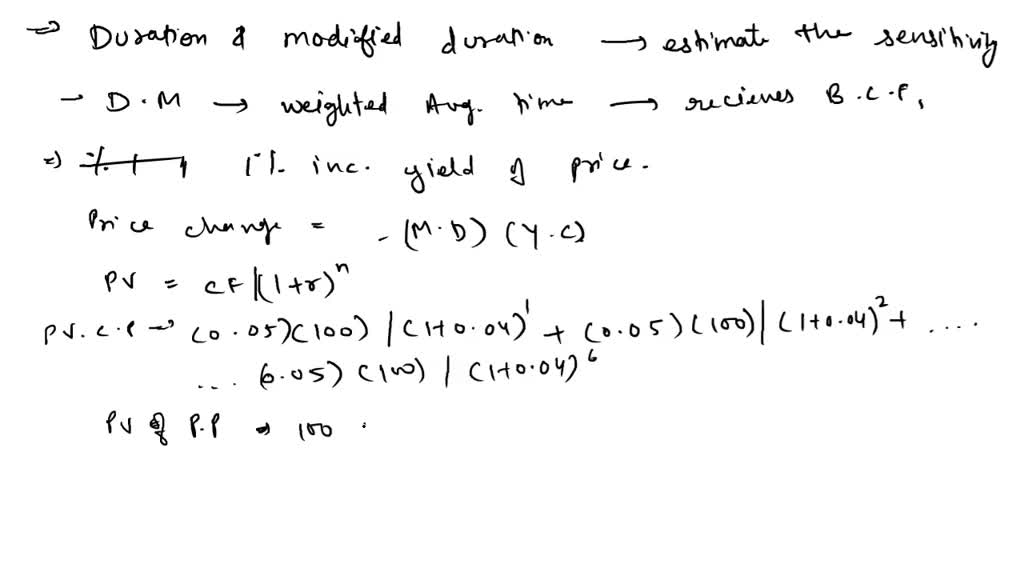 ⇒ Duration & modified duration → estimate the sensitivity
- D.M → weighted Avg. time → recieves B.C.F,
⇒ 1% inc. yield of price.
Price change = - (M.D) (Y.C)
PV = CF|(1+r)^n
PV.C.P → (0.05)(100) | (1+0.04)^1 + (0.05)(100) | (1+0.04)^2 + ....
... (0.05) (100) | (1+0.04)^6
PV of P.P → 100 .